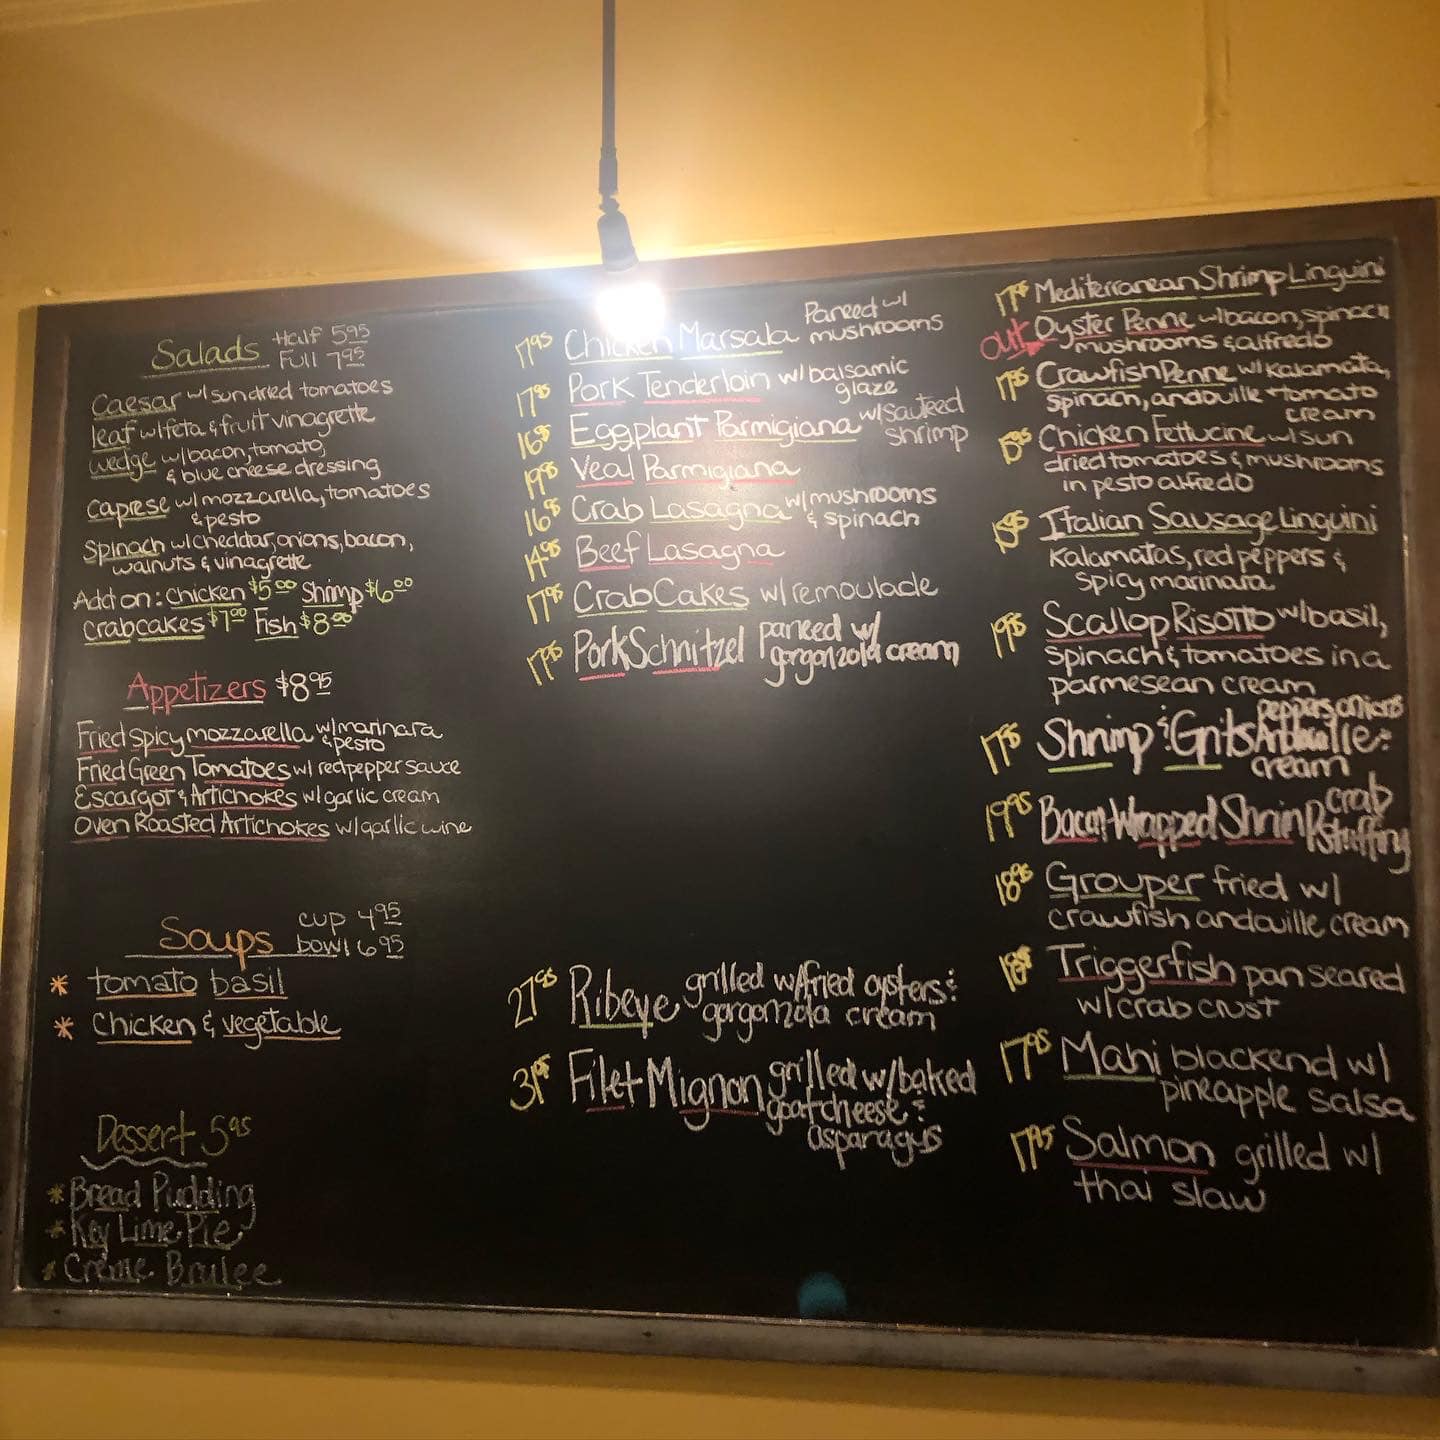 Salads Half 5.95
Full 7.95
Caesar w/ sundried tomatoes
leaf w/feta & fruit vinagrette
wedge w/bacon, tomato,
& blue cheese dressing
Caprese w/ mozzarella, tomatoes
& pesto
Spinach w/cheddar, onions, bacon,
walnuts & vinagrette
Add on: Chicken $5.00 Shrimp $6.00
Crabcakes $7.00 Fish $8.00
Appetizers $8.95
Fried spicy mozzarella w/marinara
& pesto
Fried Green Tomatoes w/ red pepper sauce
Escargot & Artichokes w/garlic cream
Oven Roasted Artichokes w/garlic wine
Soups cup 4.95
bowl 6.95
* tomato basil
* Chicken & vegetable
Dessert 5.95
* Bread Pudding
* Key Lime Pie
* Créme Brulee
17.95 Chicken Marsala Paneed w/
mushrooms
17.95 Pork Tenderloin w/ balsamic
glaze
16.95 Eggplant Parmigiana w/sauteed
shrimp
19.95 Veal Parmigiana
16.95 Crab Lasagna w/mushrooms
& spinach
14.95 Beef Lasagna
17.95 Crab Cakes w/ remoulade
17.95 Pork Schnitzel paneed w/
gorgonzola cream
27.95 Ribeye grilled w/fried oysters &
gorgonzola cream
31.95 Filet Mignon grilled w/baked
goatcheese &
asparagus
17.95 Mediterranean Shrimp Linguini
out Oyster Penne w/bacon, spinach
mushrooms & alfredo
17.95 Crawfish Penne w/ kalamata,
spinach, andouille & tomato
cream
Chicken Fettucine w/ sun
dried tomatoes & mushrooms
in pesto alfredo
Italian Sausage Linguini
Kalamatas, red peppers &
spicy marinara
19.95 Scallop Risotto w/basil,
spinach & tomatoes in a
parmesean cream
17.95 Shrimp & Grits peppers, onions
Andouille &
cream
19.95 Bacon-Wrapped Shrimp crab
stuffing
18.95 Grouper fried w/
crawfish andouille cream
Triggerfish pan seared
w/ crab crust
17.95 Mahi blackend w/
pineapple salsa
17.95 Salmon grilled w/
thai slaw